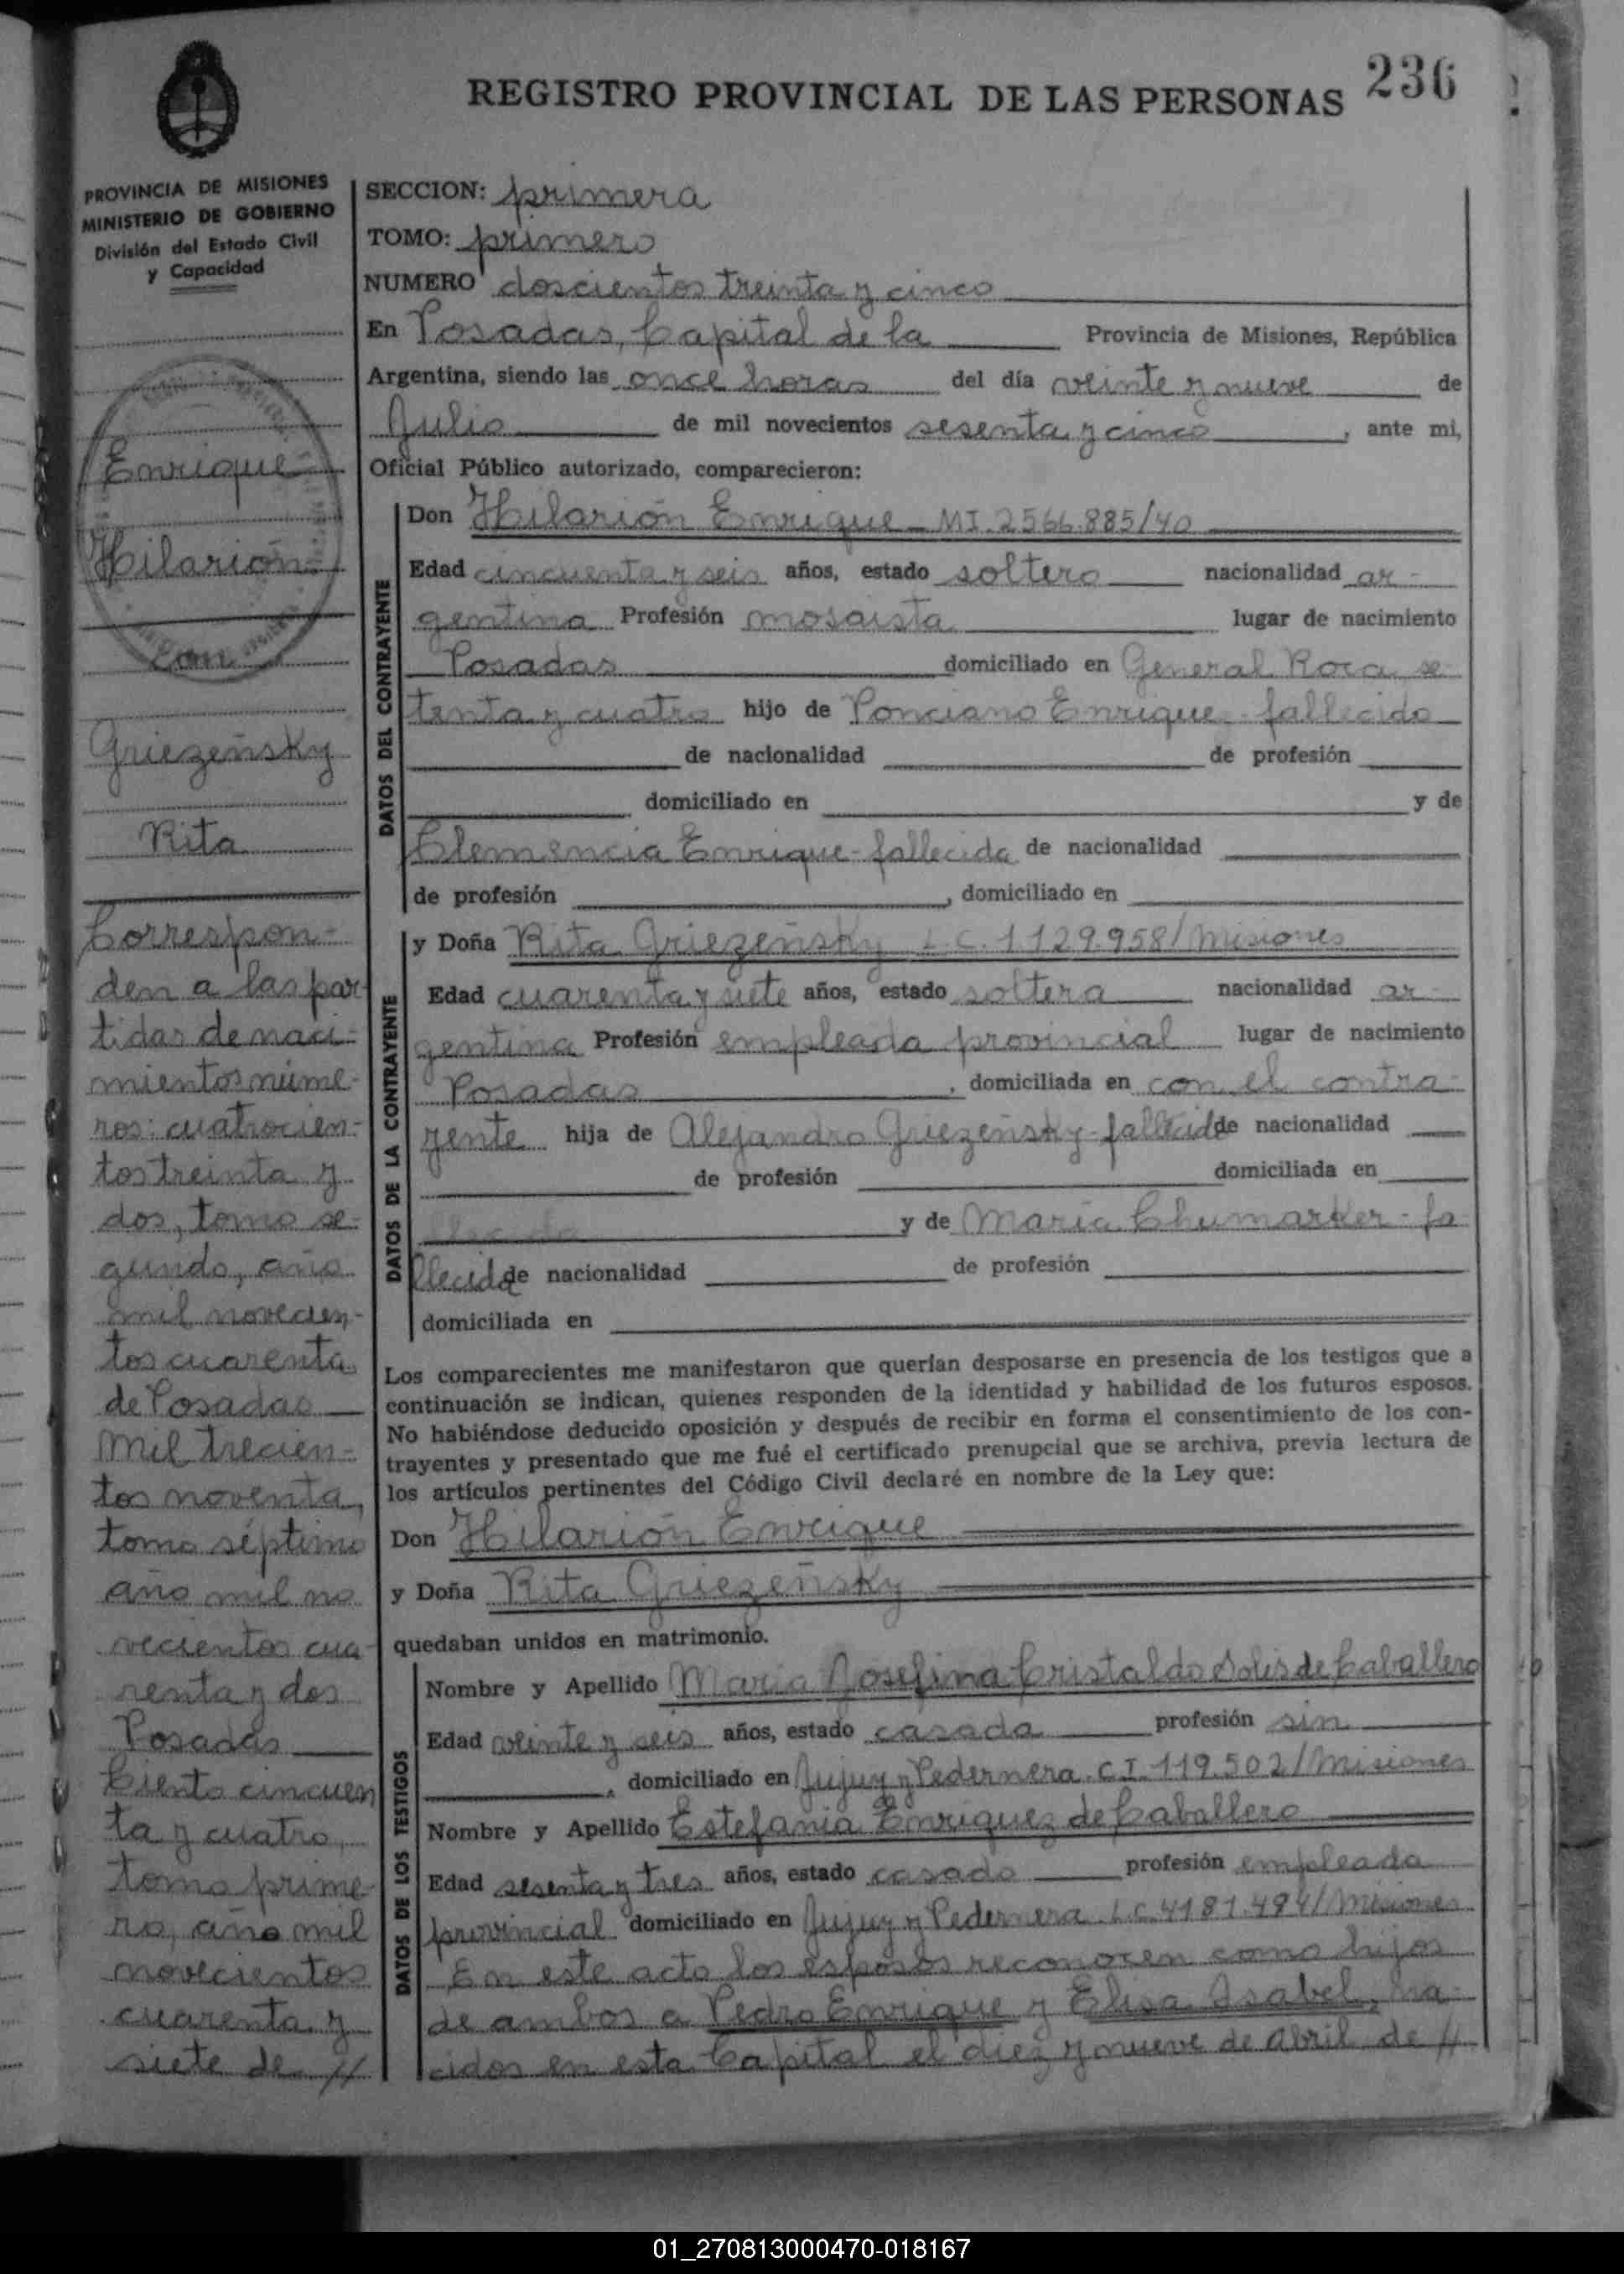 REGISTRO PROVINCIAL DE LAS PERSONAS 236
PROVINCIA DE MISIONES
MINISTERIO DE GOBIERNO
División del Estado Civil
y Capacidad
Enrique
Hilarión
con
Griezeñsky
Rita
Correspon-
den a las par-
tidas de naci-
mientos núme-
ros: cuatrocien-
tos treinta y
dos, tomo se-
gundo, año
mil novecien-
tos cuarenta
de Posadas
Mil trecien-
tos noventa,
tomo séptimo
año mil no
vecientos cua-
renta y dos
Posadas
Ciento cincuen
ta y cuatro,
tomo prime-
ro, año mil
novecientos
cuarenta y
siete de //
SECCION: primera
TOMO: primero
NUMERO doscientos treinta y cinco
En Posadas, Capital de la Provincia de Misiones, República
Argentina, siendo las once horas del día veinte y nueve de
Julio de mil novecientos sesenta y cinco, ante mi,
Oficial Público autorizado, comparecieron:
DATOS DEL CONTRAYENTE
Don Hilarión Enrique - MI. 2566.885/40
Edad cincuenta y seis años, estado soltero nacionalidad ar-
gentina Profesión mosaista lugar de nacimiento
Posadas domiciliado en General Roca se-
tenta y cuatro hijo de Ponciano Enrique - fallecido
de nacionalidad de profesión
domiciliado en y de
Clemencia Enrique - fallecida de nacionalidad
de profesión , domiciliado en
DATOS DE LA CONTRAYENTE
y Doña Rita Griezeñsky L.C. 1129.958/Misiones
Edad cuarenta y siete años, estado soltera nacionalidad ar-
gentina Profesión empleada provincial lugar de nacimiento
Posadas , domiciliada en con el contra-
yente hija de Alejandro Griezeñsky - fallecido de nacionalidad
de profesión domiciliada en
y de María Chumarker - fa-
llecida de nacionalidad de profesión
domiciliada en
Los comparecientes me manifestaron que querían desposarse en presencia de los testigos que a
continuación se indican, quienes responden de la identidad y habilidad de los futuros esposos.
No habiéndose deducido oposición y después de recibir en forma el consentimiento de los con-
trayentes y presentado que me fué el certificado prenupcial que se archiva, previa lectura de
los artículos pertinentes del Código Civil declaré en nombre de la Ley que:
Don Hilarión Enrique
y Doña Rita Griezeñsky
quedaban unidos en matrimonio.
DATOS DE LOS TESTIGOS
Nombre y Apellido María Josefina Cristaldo Solis de Caballero
Edad veinte y seis años, estado casada profesión sin
, domiciliado en Jujuy y Pedernera. C.I. 119.502/Misiones
Nombre y Apellido Estefania Enriquez de Caballero
Edad sesenta y tres años, estado casado profesión empleada
provincial domiciliado en Jujuy y Pedernera. L.C. 4181.494/Misiones
En este acto los esposos reconocen como hijos
de ambos a Pedro Enrique y Elisa Isabel, na-
cidos en esta Capital el diez y nueve de abril de //
01_270813000470-018167